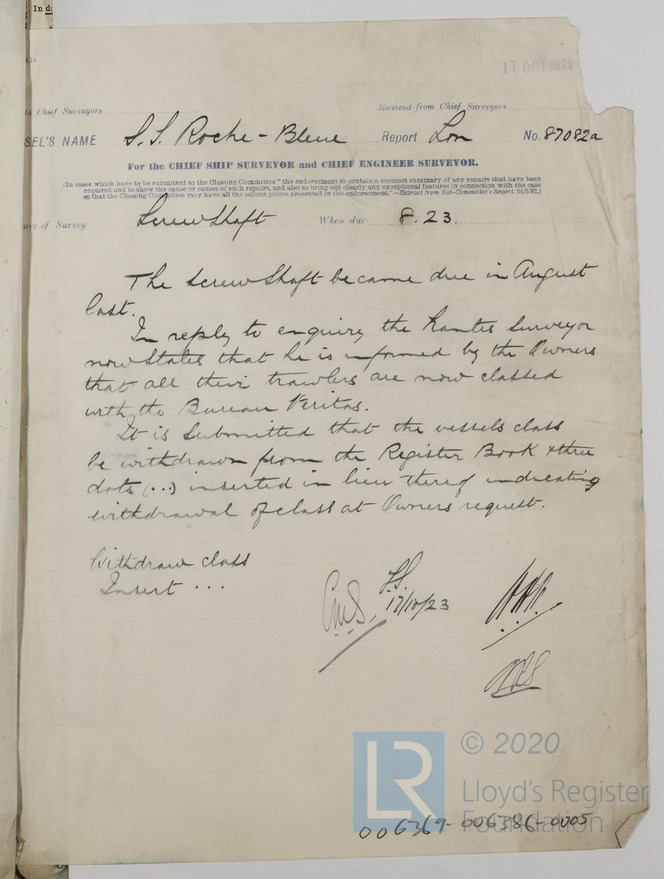 In d
17 OCT 1923
to Chief Surveyors
Received from Chief Surveyors
SEL'S NAME S.S. Roche-Bleue Report Lon No. 87082a
For the CHIEF SHIP SURVEYOR and CHIEF ENGINEER SURVEYOR.
(In cases which have to be submitted to the Classing Committee "the endorsement to contain a succinct summary of any repairs that have been
required and to show the cause or causes of such repairs, and also to bring out clearly any exceptional features in connection with the case
so that the Classing Committee may have all the salient points presented in the endorsement."—Extract from Sub-Committee's Report,
ure of Survey Screw Shaft When due 8.23.
The Screw Shaft became due in August
last.
In reply to enquiry the Nantes Surveyor
now states that he is informed by the Owners
that all their trawlers are now classed
with the Bureau Veritas.
It is submitted that the vessels class
be withdrawn from the Register Book & three
dots (...) inserted in lieu thereof indicating
withdrawal of class at Owners request.
Withdraw class
Insert ...
17/10/23
LR
© 2020
Lloyd's Register
Foundation
006369-006386-0005